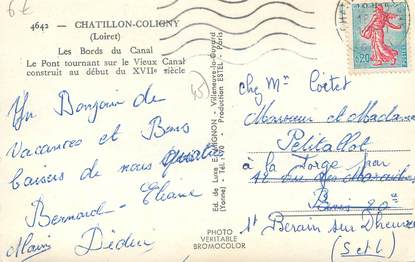 6€
4642 - CHATILLON-COLIGNY
(Loiret)
Les Bords du Canal
Le Pont tournant sur le Vieux Canal
construit au début du XVIIe siècle
Un Bonjour de
vacances et Bons
baisers de nous quatre
Bernard - Eliane
Alain Dédée
45
Ed. de Luxe ESTIGNON - Villeneuve-la-Guyard
(Yonne) Tél. 170 Production ESTEL - Paris
PHOTO
VERITABLE
BROMOCOLOR
0,20
chez Mr
Monsieur et Madame
Petitallot
à la Forge par
Paris 20e
St Berain sur Dheune
(S et L)